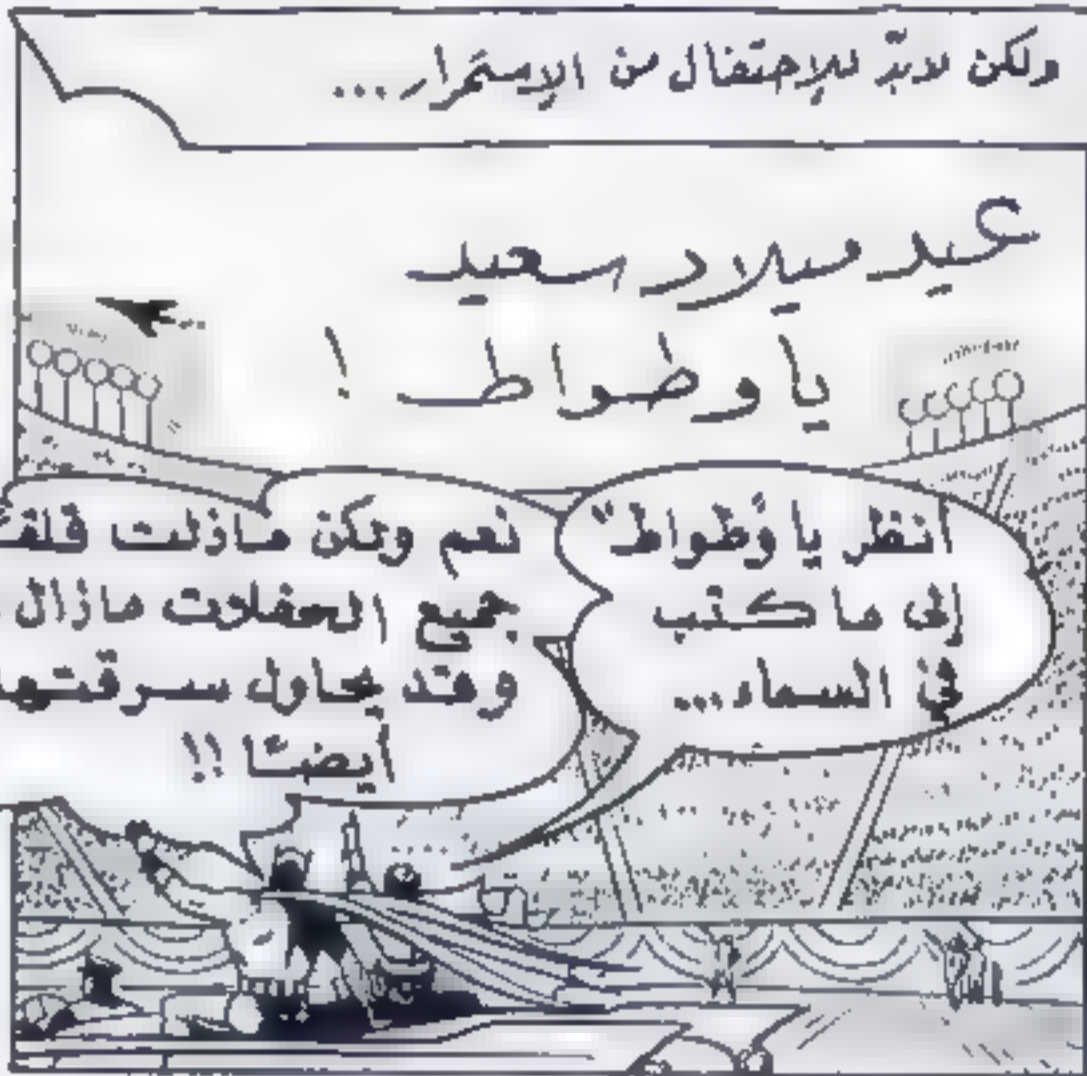 ولكن لابدّ للإحتفال من الإستمرار...
عيد ميلاد سعيد
يا وطواط !
أنظر يا وَطواط"
إلى ما كتب
في السماء...
نعم ولكن مازلت
جميع الحفلات مازال
وقد يحاول سرقتها
أيضًا !!